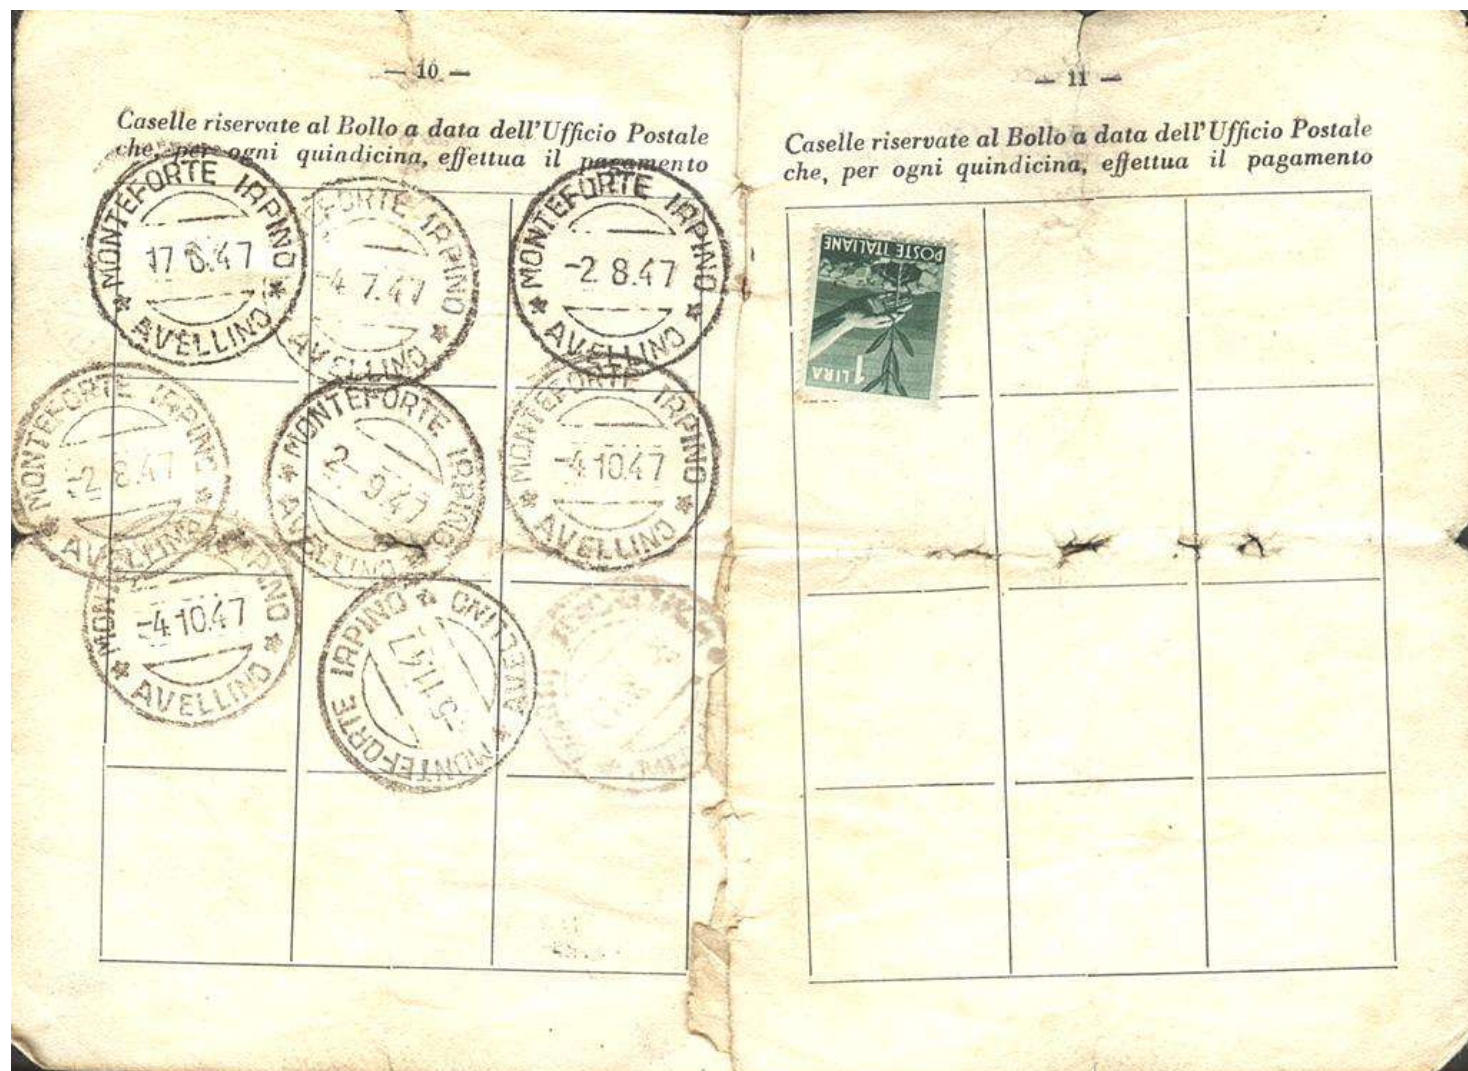 — 10 —
Caselle riservate al Bollo a data dell'Ufficio Postale
che, per ogni quindicina, effettua il pagamento
MONTEFORTE IRPINO
17 6.47
AVELLINO
FORTE IRPINO
-4 7.47
AVELLINO
MONTEFORTE IRPINO
-2 8.47
AVELLINO
MONTEFORTE IRPINO
-2 8.47
AVELLINO
MONTEFORTE IRPINO
2- 9.47
AVELLINO
MONTEFORTE IRPINO
-4 10.47
AVELLINO
IRPINO
-4 10.47
AVELLINO
MONTEFORTE IRPINO
-5 11 47
AVELLINO
— 11 —
Caselle riservate al Bollo a data dell'Ufficio Postale
che, per ogni quindicina, effettua il pagamento
POSTE ITALIANE
1 LIRA